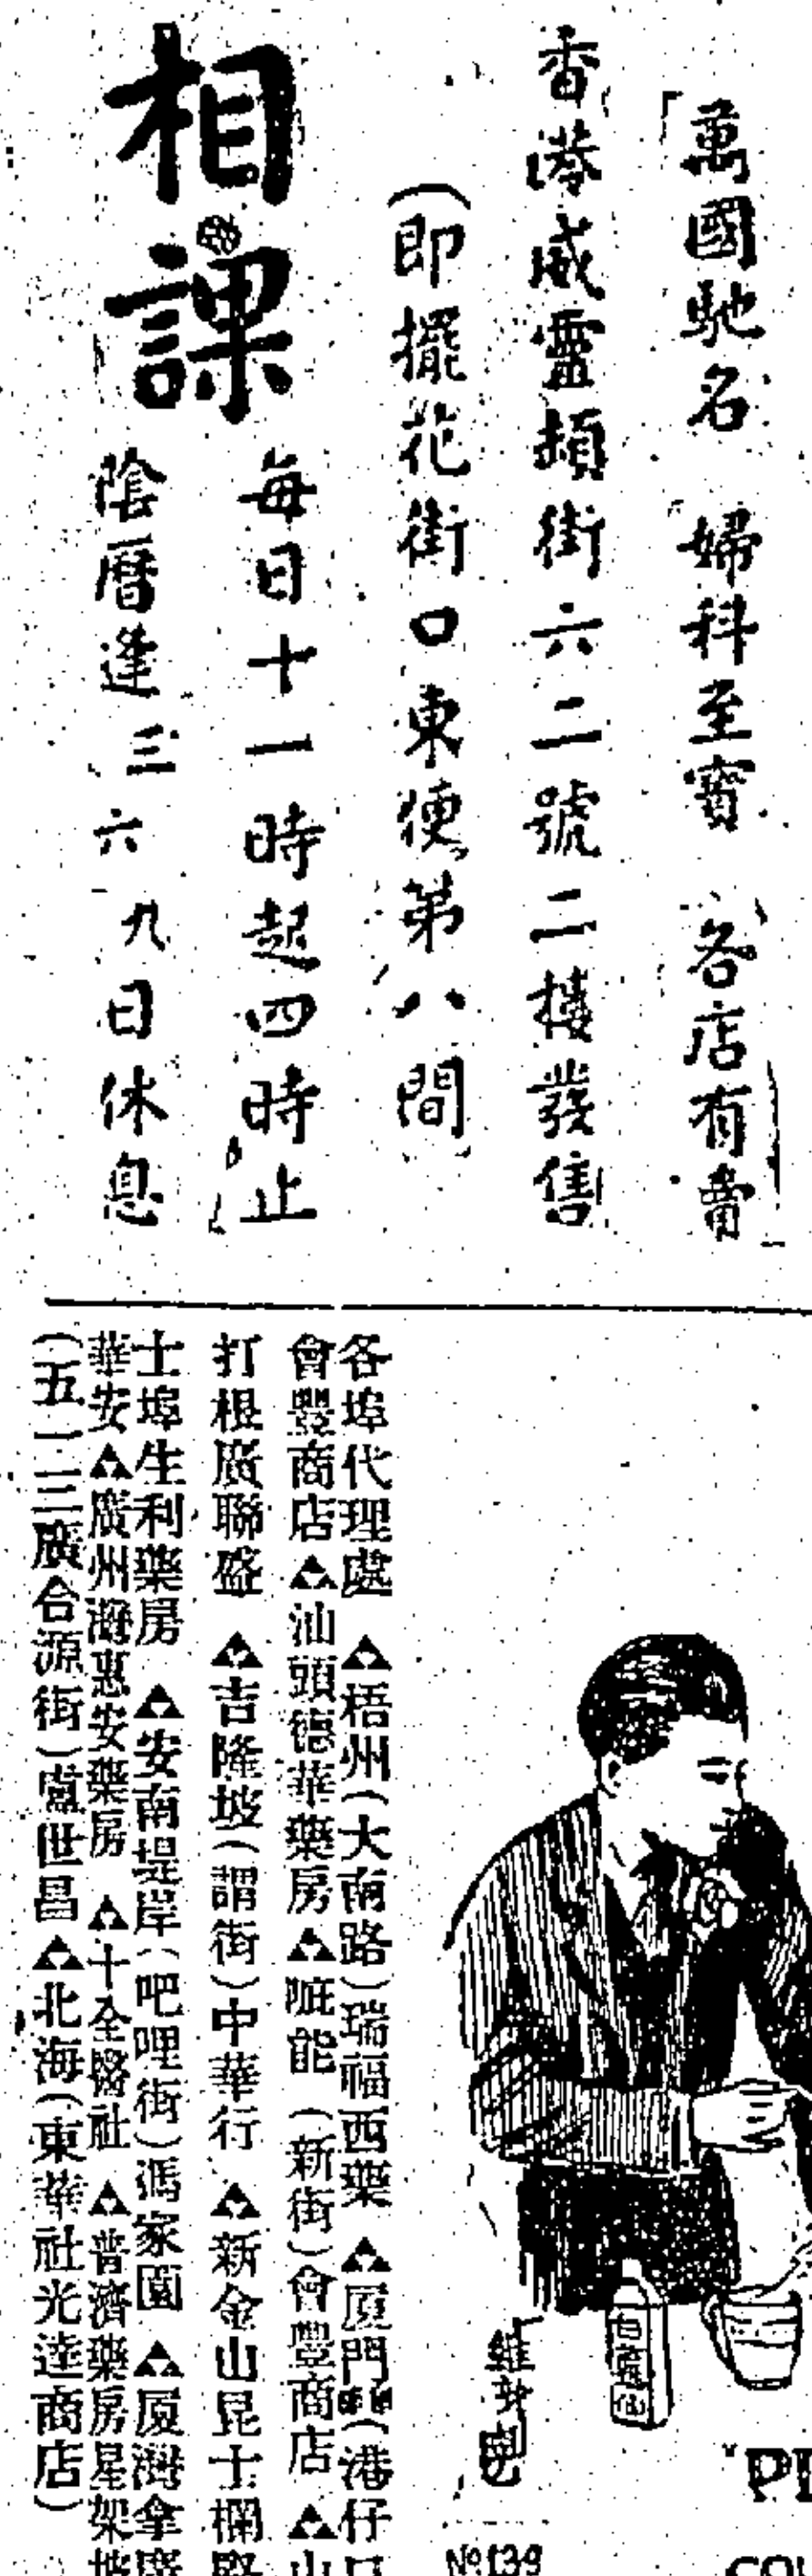 萬國馳名 婦科至寶 各店有賣
香港威靈頓街六二號二樓發售
(即擺花街口東便第八間)
相課
每日十一時起四時止
陰曆逢三六九日休息
各埠代理處 ▲梧州(大南路)瑞福西藥 ▲厦門(港仔口
會豐商店▲汕頭德華藥房▲(新街)會豐商店 ▲山
打根廣聯盛 ▲吉隆坡(謂街)中華行 ▲新金山昆士欄
士埠生利藥房 ▲安南堤岸(吧哩街)馮家園 ▲厦灣拿廣
華安▲廣州灣惠安藥房 ▲十全醫社 ▲普濟藥房星架坡
(五一二三廣合源街)盧世昌▲北海(東華社光達商店)
№139